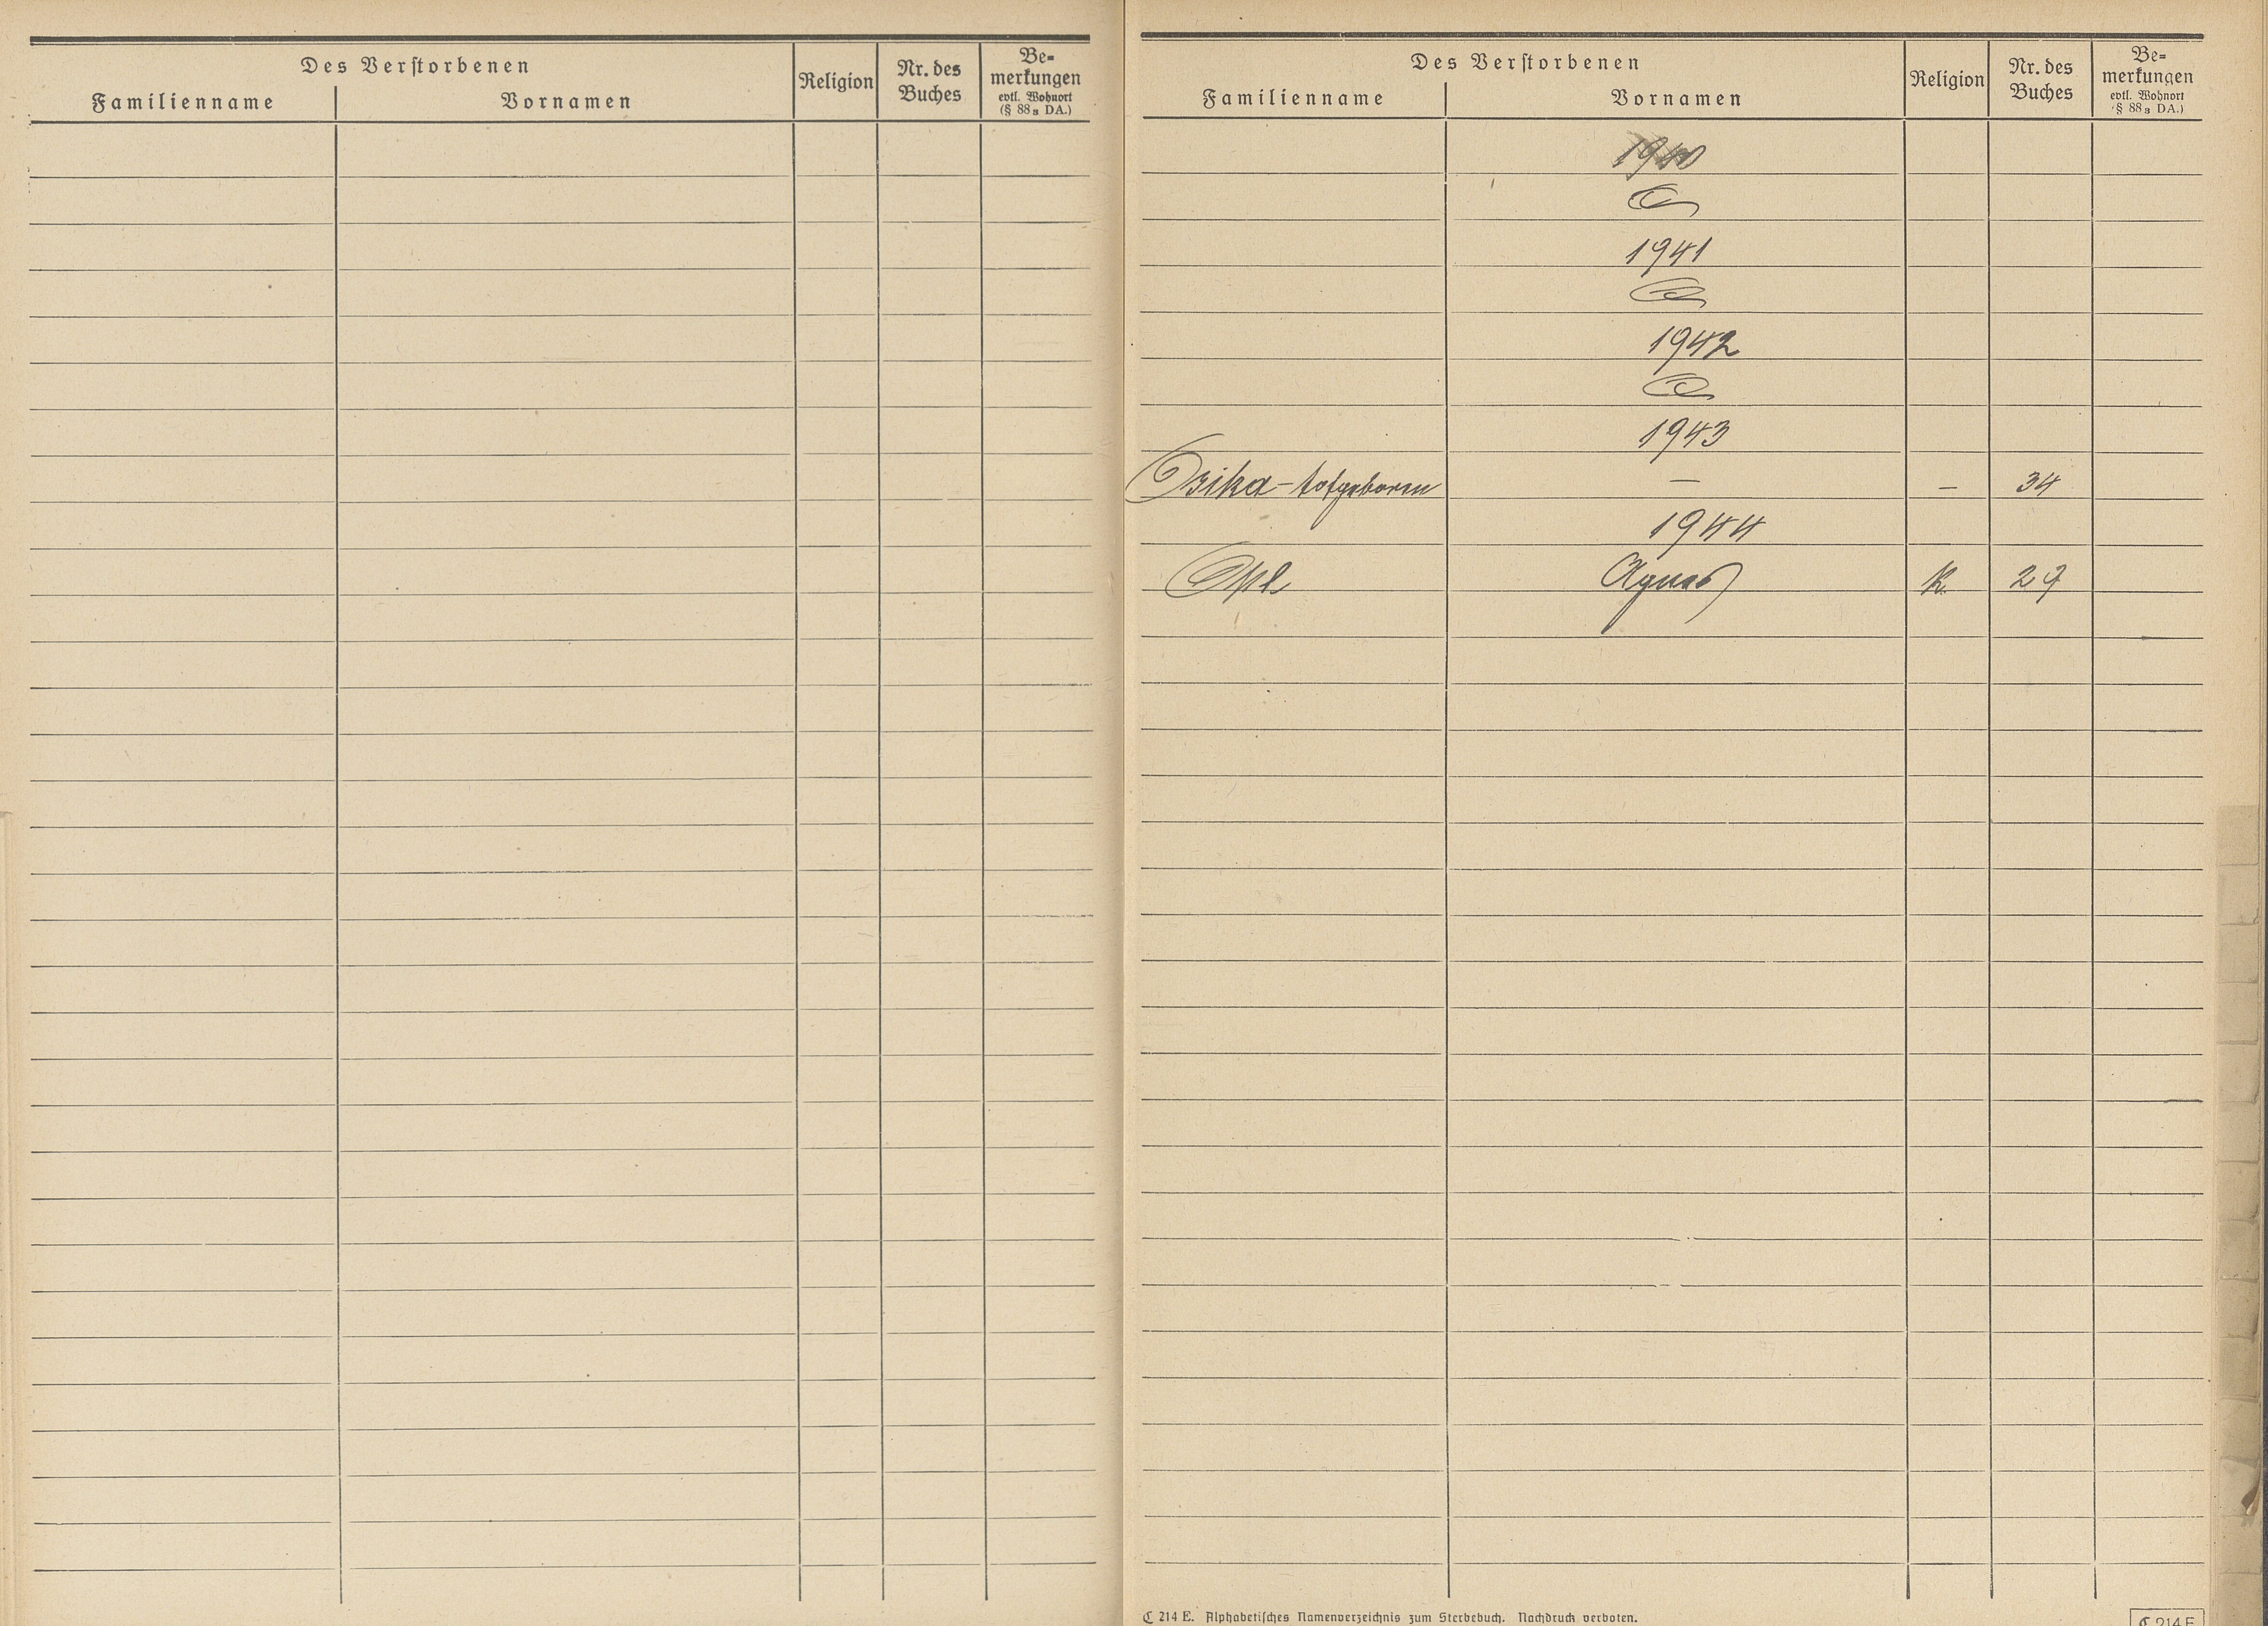 Des Verstorbenen
Familienname Vornamen Religion Nr. des Buches Be=merkungen evtl. Wohnort (§ 88₃ DA.)
Des Verstorbenen
Familienname Vornamen Religion Nr. des Buches Be=merkungen evtl. Wohnort (§ 88₃ DA.)
1940
1941
1942
1943
Osika - totgeboren — — 34
1944
Opl Agnes K. 29
C 214 E. Alphabetisches Namenverzeichnis zum Sterbebuch. Nachdruck verboten.
C 214 E